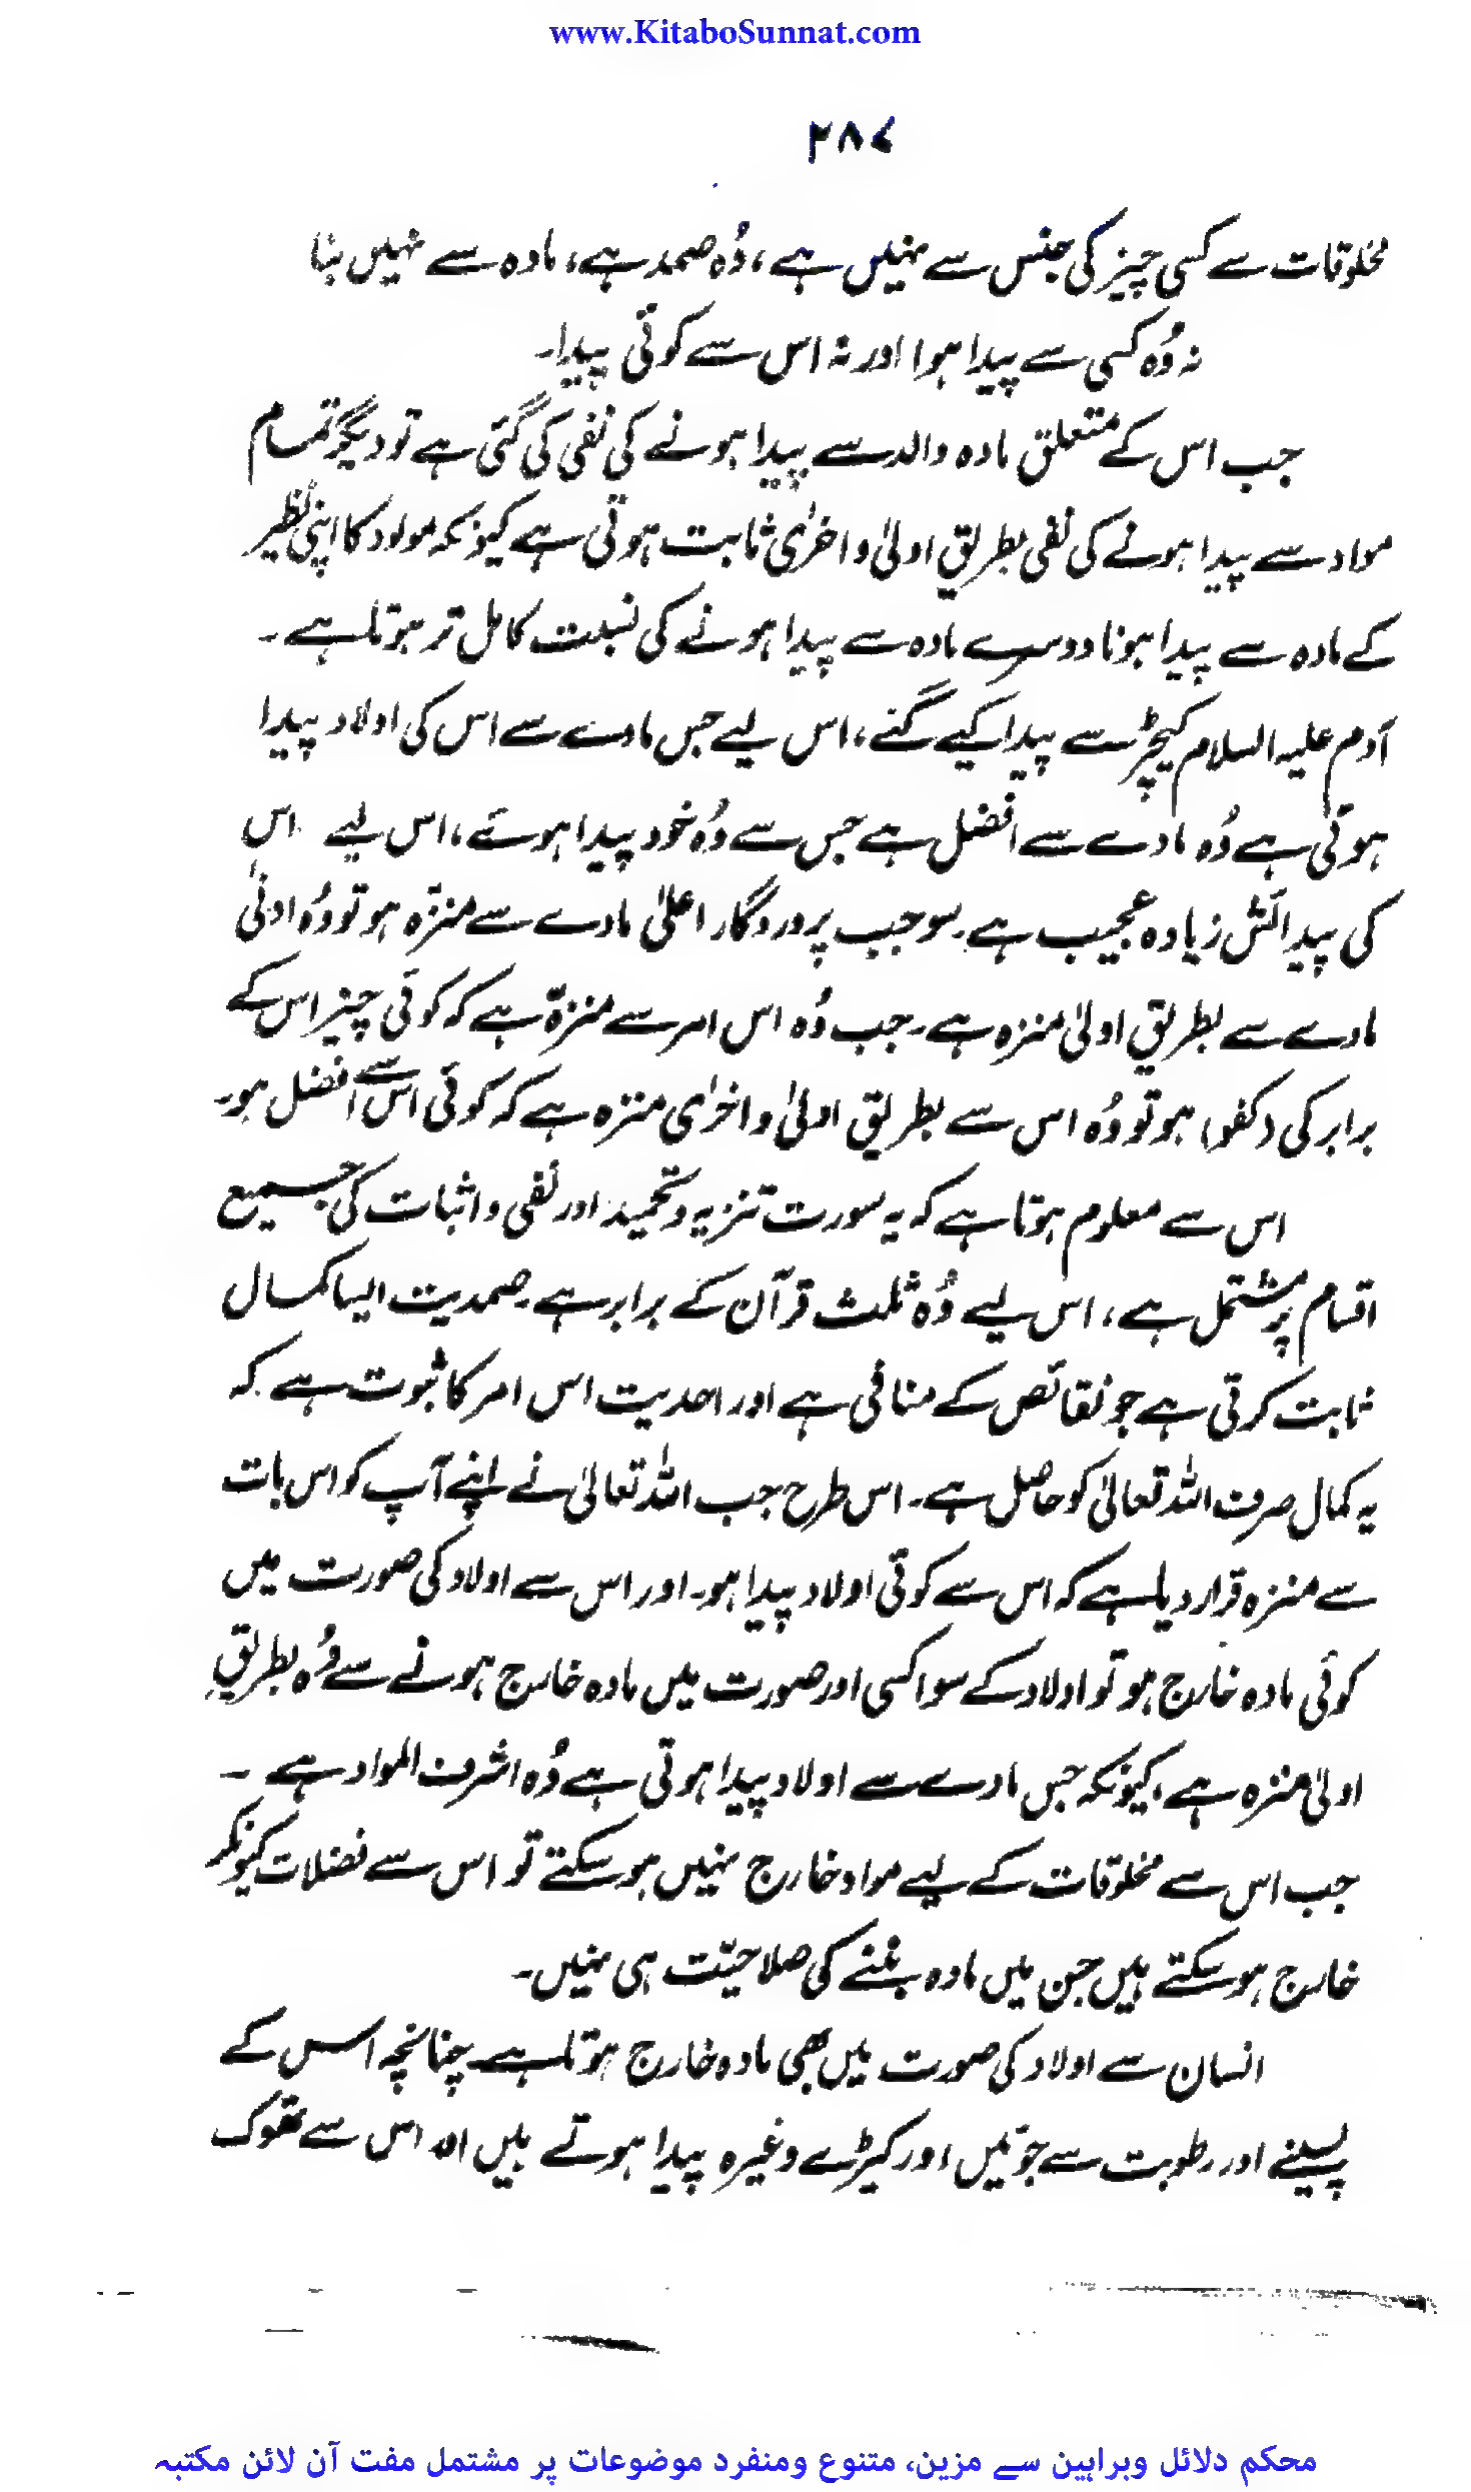 www.KitaboSunnat.com
۲۸۷
مخلوقات سے کسی چیز کی جنس سے نہیں ہے، وُہ صمد ہے، مادہ سے نہیں بنا
نہ وُہ کسی سے پیدا ہوا اور نہ اس سے کوئی پیدا۔
جب اس کے متعلق مادہ والد سے پیدا ہونے کی نفی کی گئی ہے تو دیگر تمام
مواد سے پیدا ہونے کی نفی بطریق اولیٰ و اخرٰی ثابت ہوتی ہے کیونکہ مولود کا اپنی نظیر
کے مادہ سے پیدا ہونا دوسرے مادہ سے پیدا ہونے کی نسبت کامل تر ہوتا ہے۔
آدم علیہ السلام کیچڑ سے پیدا کیے گئے، اس لیے جس مادے سے اس کی اولاد پیدا
ہوتی ہے وُہ مادے سے افضل ہے جس سے وُہ خود پیدا ہوئے، اس لیے اس
کی پیدائش زیادہ عجیب ہے۔ سو جب پروردگار اعلیٰ مادے سے منزّہ ہو تو وُہ ادنیٰ
مادے سے بطریق اولیٰ منزہ ہے۔ جب وُہ اس امر سے منزہّ ہے کہ کوئی چیز اس کے
برابر کی (کفو) ہو تو وُہ اس سے بطریق اولیٰ و اخرٰی منزہ ہے کہ کوئی اس سے افضل ہو۔
اس سے معلوم ہوتا ہے کہ یہ سورت تنزیہ و تحمید اور نفی و اثبات کی جمیع
اقسام پر مشتمل ہے، اس لیے وُہ ثلث قرآن کے برابر ہے۔ صمدیت ایسا کمال
ثابت کرتی ہے جو نقائص کے منافی ہے اور احدیت اس امر کا ثبوت ہے کہ
یہ کمال صرف اللہ تعالیٰ کو حاصل ہے۔ اس طرح جب اللہ تعالیٰ نے اپنے آپ کو اس بات
سے منزہ قرار دیا ہے کہ اس سے کوئی اولاد پیدا ہو۔ اور اس سے اولاد کی صورت میں
کوئی مادہ خارج ہو تو اولاد کے سوا کسی اور صورت میں مادہ خارج ہونے سے وُہ بطریقِ
اولیٰ منزہ ہے، کیونکہ جس مادے سے اولاد پیدا ہوتی ہے وُہ اشرف المواد ہے۔
جب اس سے مخلوقات کے لیے مواد خارج نہیں ہو سکتے تو اس سے فضلات کیونکر
خارج ہو سکتے ہیں جن میں مادہ بننے کی صلاحیّت ہی نہیں۔
انسان سے اولاد کی صورت میں بھی مادہ خارج ہوتا ہے۔ چنانچہ اس کے
پسینے اور رطوبت سے جوئیں اور کیڑے وغیرہ پیدا ہوتے ہیں اور اس سے تھوک
محکم دلائل وبراہین سے مزین، متنوع ومنفرد موضوعات پر مشتمل مفت آن لائن مکتبہ